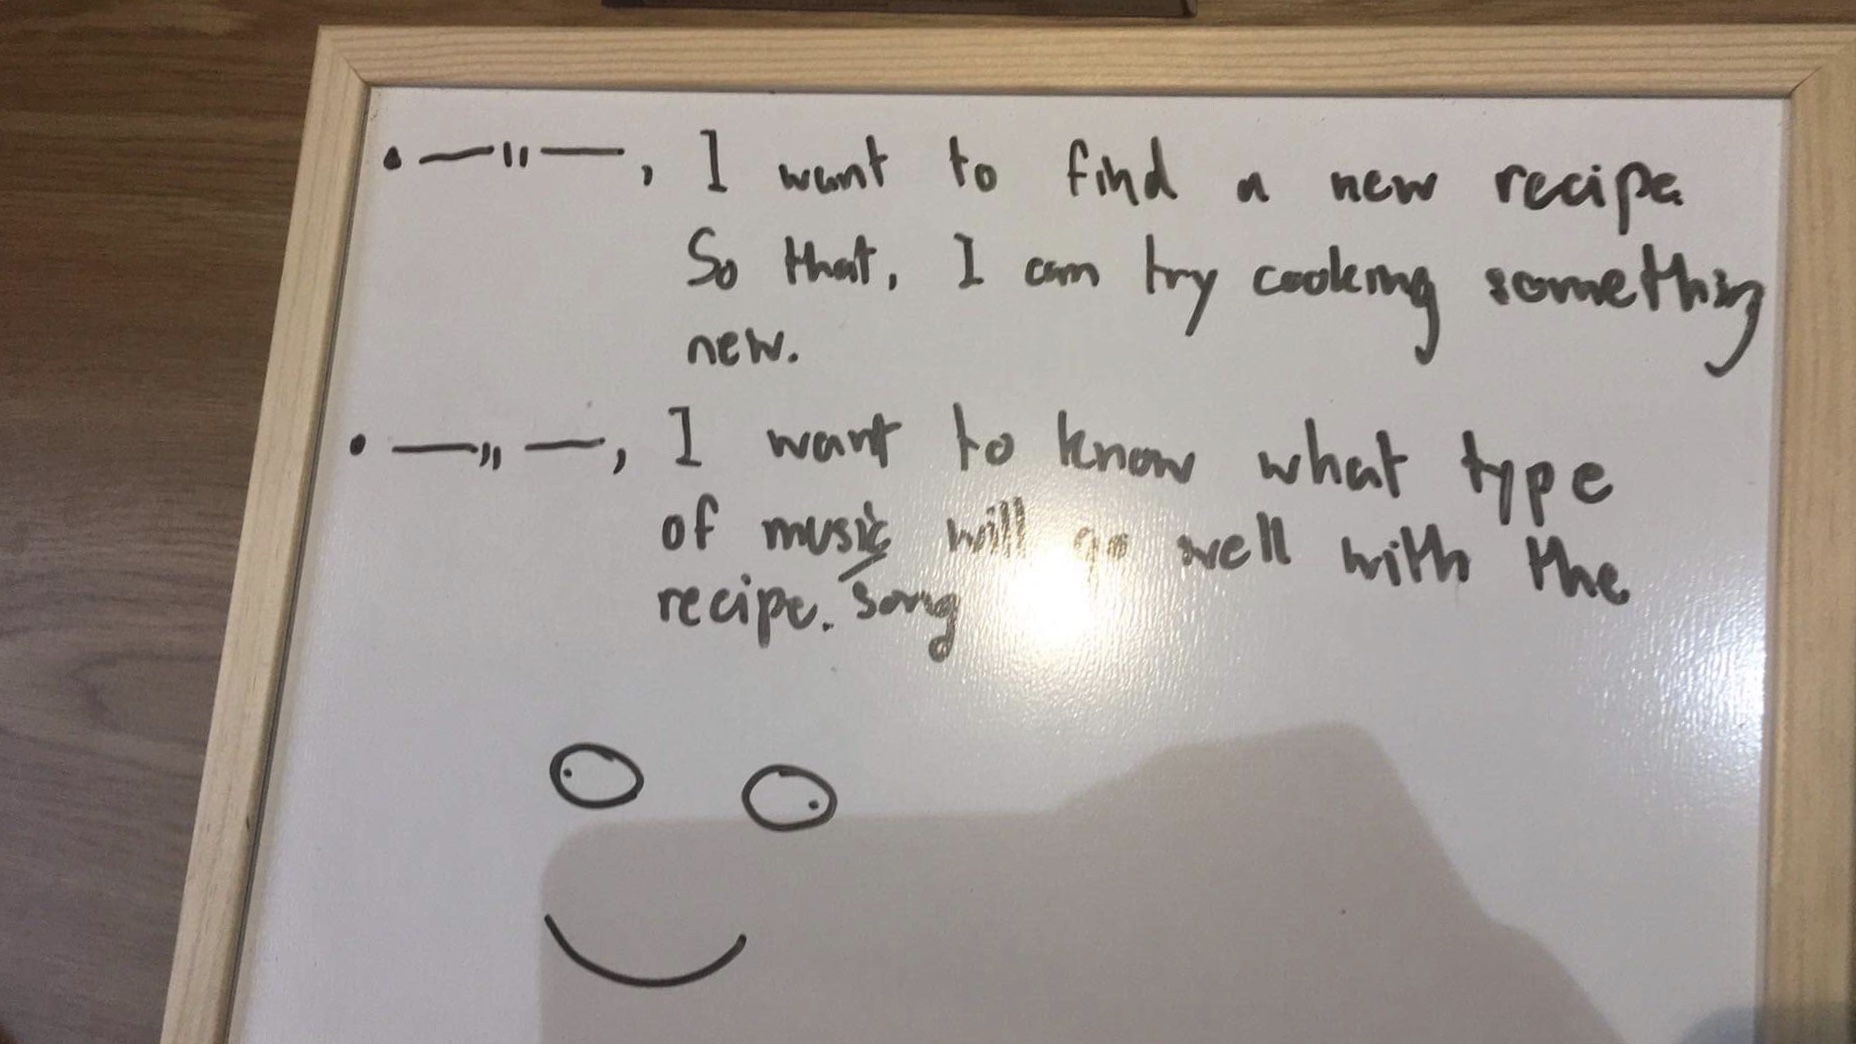 • — " —, I want to find a new recipe
So that, I can try cooking something
new.
• — " —, I want to know what type
of music will go well with the
recipe. /song